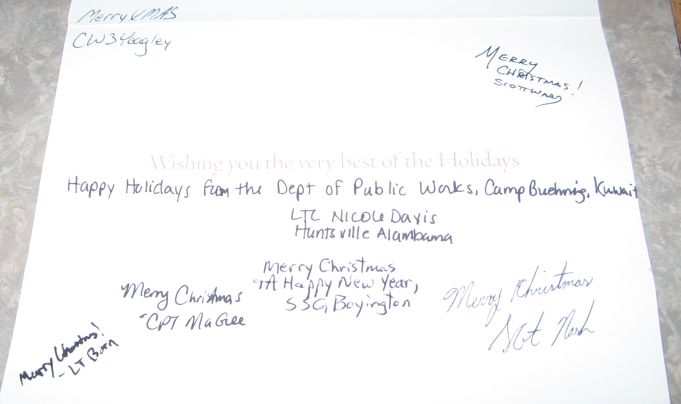 Merry XMAS
CW3 Yoagley
MERRY
CHRISTMAS!
SCOTT WARD
Wishing you the very best of the Holidays
Happy Holidays from the Dept of Public Works, Camp Buehring, Kuwait
LTC NICOLE Davis
Huntsville Alambama
Merry Christmas
+A Happy New Year,
SSG Boyington
Merry Christmas
-CPT MaGee
Merry Christmas
Sgt Nash
Merry Christmas!
- LT